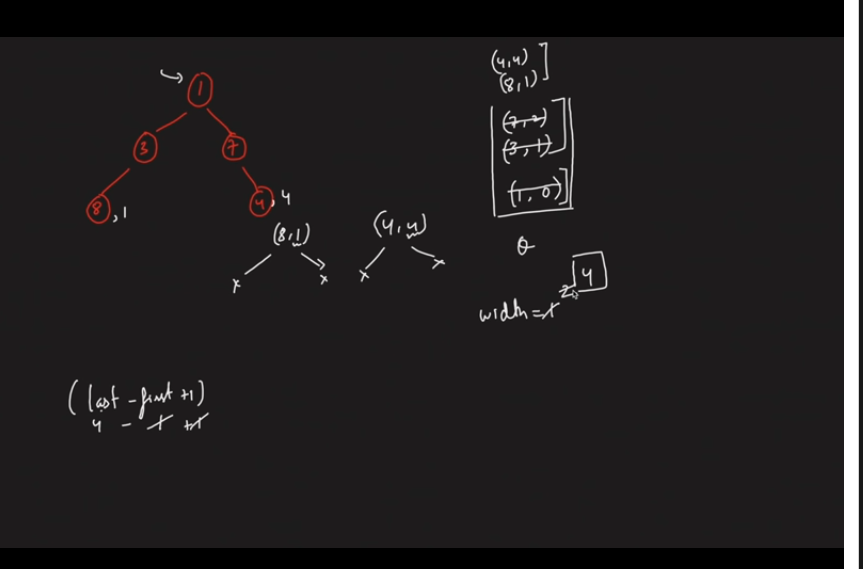 1
3
7
8 , 1
4 , 4
(8,1)
x
x
(4,4)
x
x
(4,4)
(8,1)
(7,2)
(3,1)
(1,0)
Q
width = 1 2 4
(last - first +1)
4 - 1 +1